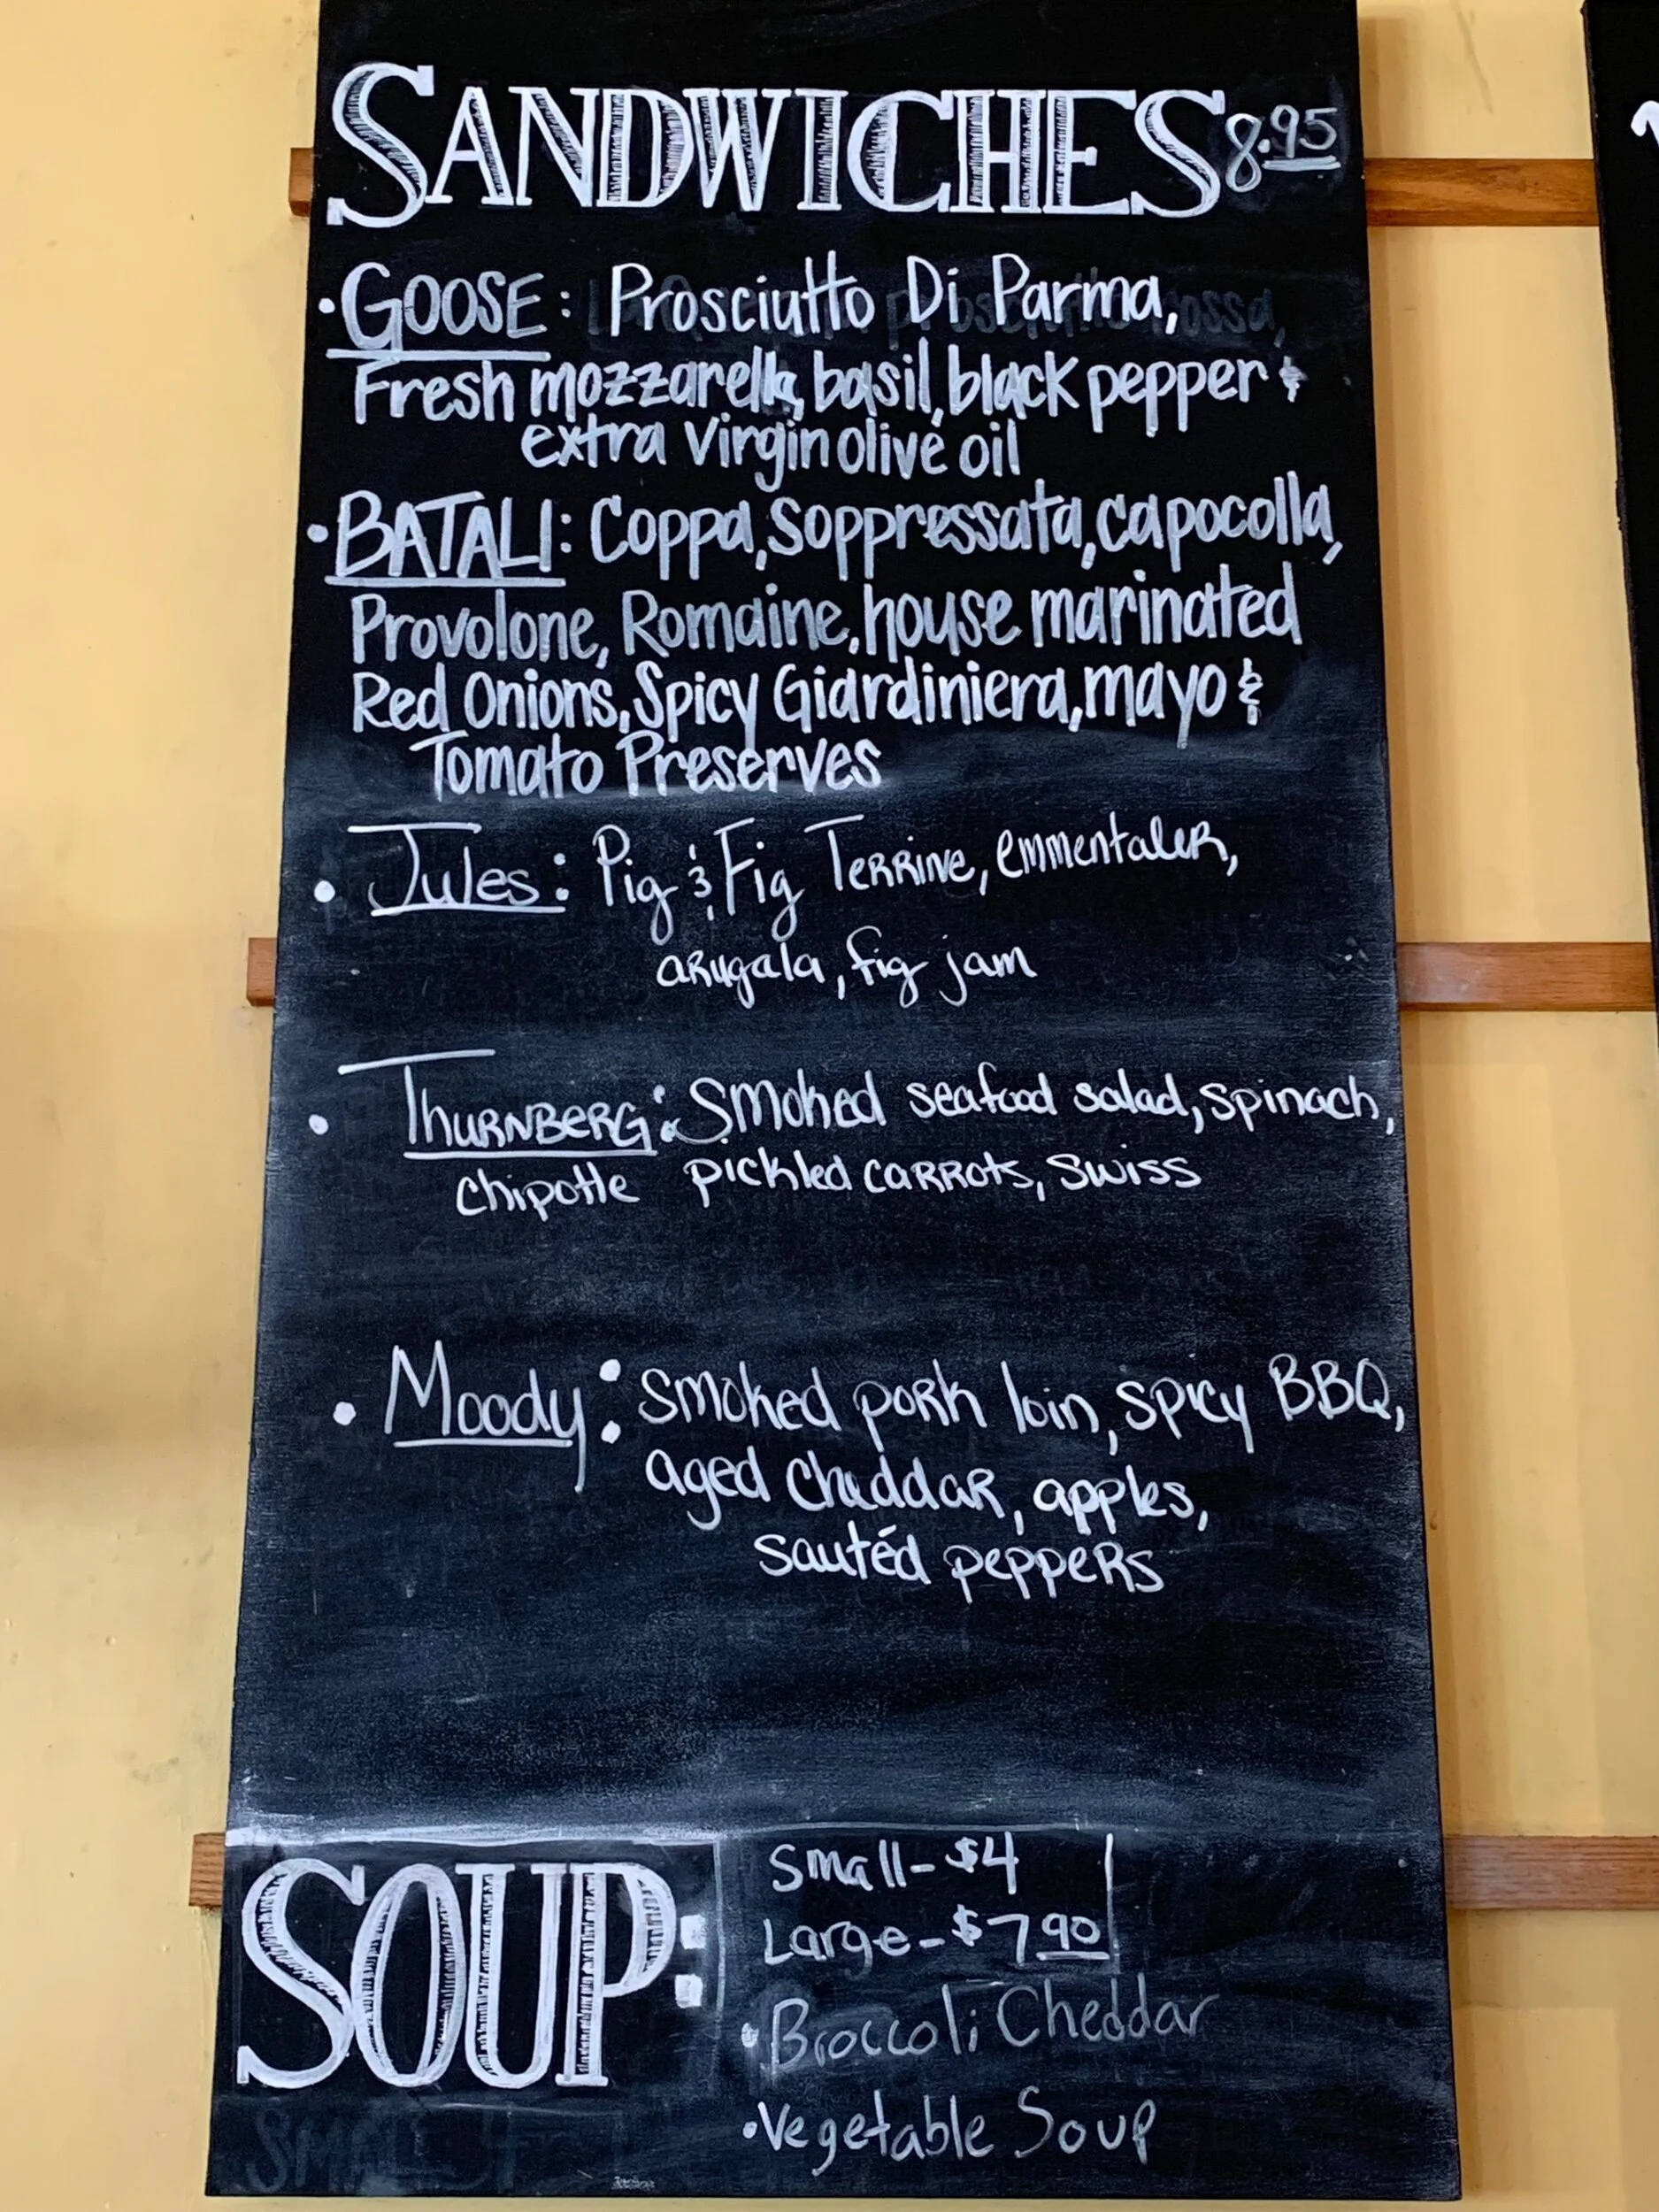 SANDWICHES 8.95
• GOOSE: Prosciutto Di Parma,
Fresh mozzarella, basil, black pepper &
extra virgin olive oil
• BATALI: Coppa, Soppressata, capocolla,
Provolone, Romaine, house marinated
Red Onions, Spicy Giardiniera, mayo &
Tomato Preserves
• Jules: Pig & Fig Terrine, emmentaler,
arugala, fig jam
• Thurnberg: Smoked seafood salad, spinach,
chipotle pickled carrots, swiss
• Moody: smoked pork loin, spicy BBQ,
aged cheddar, apples,
sautéd peppers
SOUP:
Small - $4
Large - $7.90
• Broccoli Cheddar
• Vegetable Soup